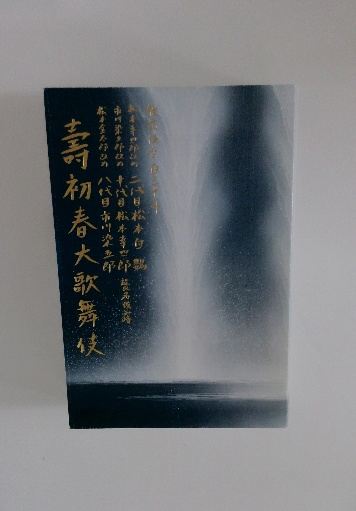 歌舞伎座百三十年
松本幸四郎改め
二代目 松本白鸚
市川染五郎改め
十代目 松本幸四郎
松本金太郎改め
八代目 市川染五郎
襲名披露
壽初春大歌舞伎